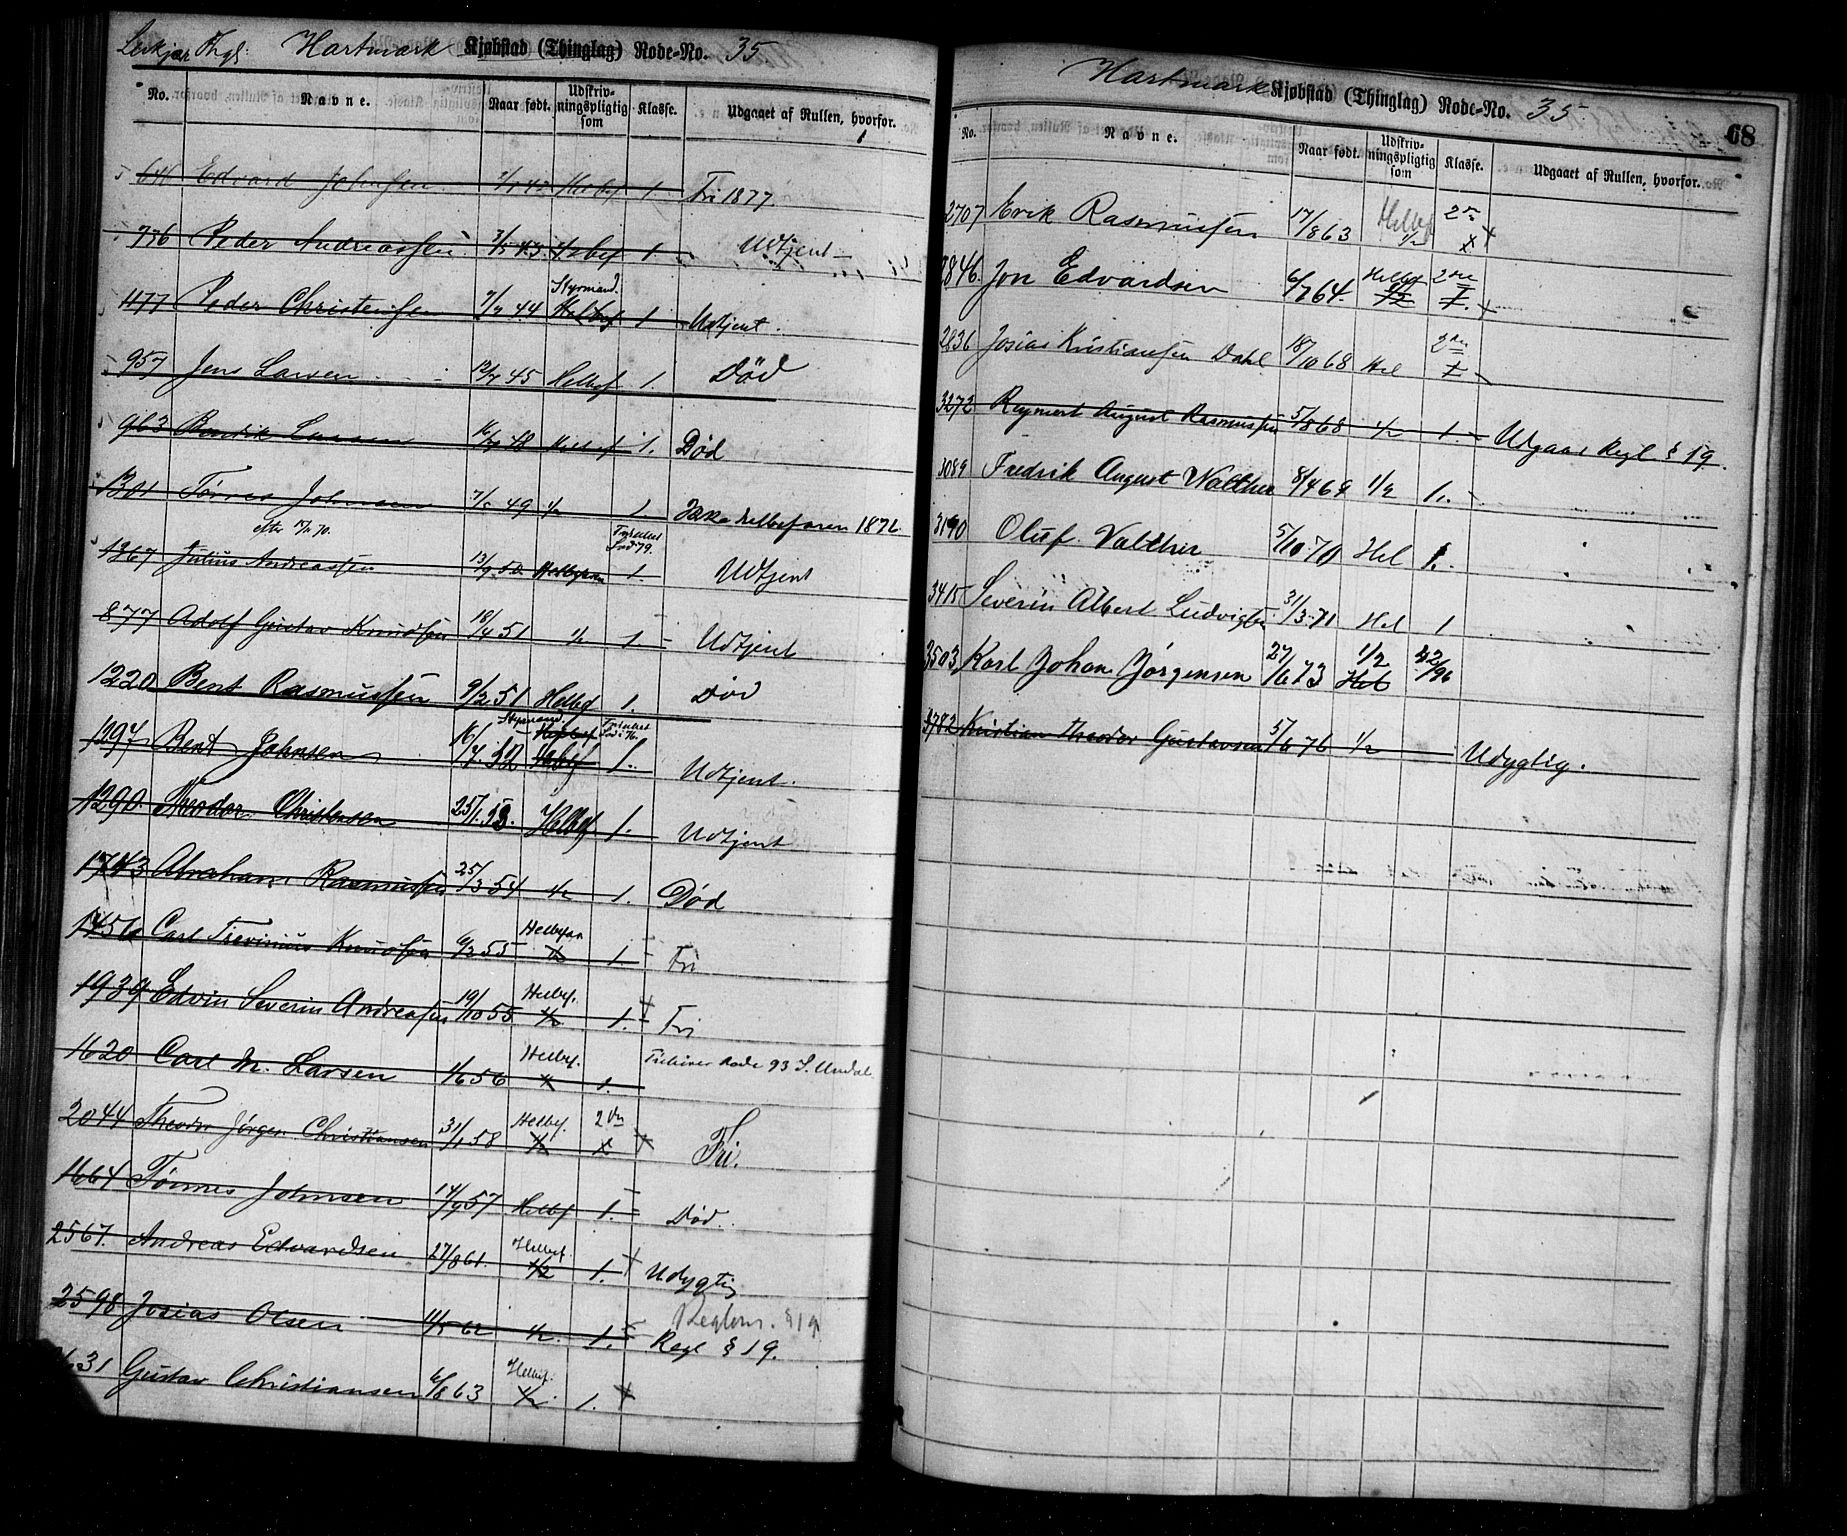 Thgl. Hartmark Kjøbstad (Thinglag) Rode-No. 35.
No. Navne. Naar født. Udskrivningspligtig som Klasse. Udgaaet af Rullen, hvorfor.
646 Edvard Johnsen 1 Fri 1877.
776 Peder Andreassen 43 1 Udtjent
1177 Peder Christensen 44 Styrmand. Helbef 1 Udtjent.
957 Jens Larsen 45 Helbef 1. Død
963 Bendik Larsen 48 Helbef 1. Død
1301 Tørres Johnsen 49 1/2 1 Ikke helbefaren 1872
1367 Julius Andreassen 13/9 50 Helbefaren 1 Udtjent
877 Adolf Gustav Knudsen 18/4 51 1/2 1 Udtjent
1220 Bent Rasmussen 9/2 51 Helbef 1. Død
1297 Bent Johnsen 16/4 52 Styrmand Helbef 1. Udtjent.
1290 Theodor Christensen 25/1 53. Helbef 1. Udtjent
1743 Abraham Rasmussen 25/3 54 1/2 1. Død
1456 Carl Knudsen 6/2 55 Helbefar 1/2 1 Fri
1939 Edvin Severin Andreassen 19/10 55 Helbef. 1/2 1. Fri
1620 Carl M. Larsen 1/6 56 Helbef. 1. Rode 93 S. Undal
2044 Theodor Jørgen Christiansen 31/1 58 Helbef. 2den Fri.
1664 Tønnes Johnsen 14/9 57 Helbef 1. Død.
2567. Andreas Edvardsen 27/8 61. Helbef. 1/2 1. Udygtig
2598 Josias Olsen 11/5 62 1/2. 1. Reglem. § 19 Regl § 19.
631 Gustav Christiansen 6/8 63 Helbef. 1/2 1.
Hartmark Kjøbstad (Thinglag) Rode-No. 35
68
No. Navne. Naar født. Udskrivningspligtig som Klasse. Udgaaet af Rullen, hvorfor.
2707 Erik Rasmussen 17/8 63 Helbef 1/2 2den
2846. Jon Edvardsen 6/7 64. Helbef 1/2 2den 1.
2836 Josias Kristiansen Dahl 18/10 68 Hel 2den 1
3272 Reymert August Rasmussen 5/8 68 1/2 1. Udgaar Regl § 19.
3089 Fredrik August Walther 8/4 69 1/2 1.
3190 Oluf Valther 5/10 70 Hel 1.
3415 Severin Albert Ludvigsen 31/3 71 Hel 1
3503 Karl Johan Jørgensen 27/6 73 1/2 Hel 2/96
3782 Kristian Theodor Gustavsen 5/6 76 1/2 Udygtig.